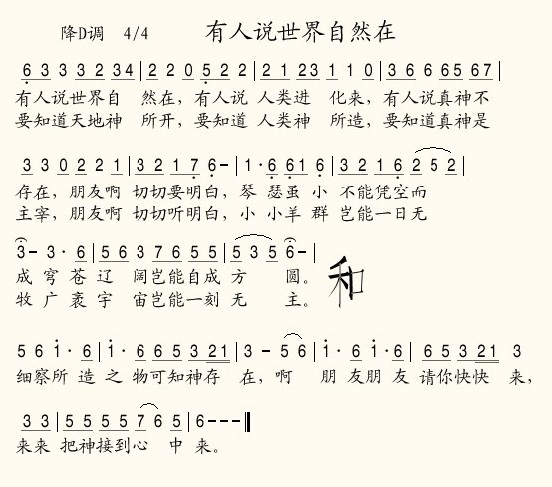 降D调 4/4 有人说世界自然在
6 3 3 3 3 2 34|2 2 0 5 2 2|2 1 23 1 1 0|3 6 6 65 67|
有人说世界自 然在，有人说 人类进 化来，有人说真神不
要知道天地神 所开，要知道 人类神 所造，要知道真神是
3 3 0 2 2 1|3 2 1 7 6-|1·6 61 6|3 2 1 6 2 5 2|
存在，朋友啊 切切要明白，琴 瑟虽 小 不能凭空而
主宰，朋友啊 切切听明白，小 小羊 群 岂能一日无
3- 3·6|5 6 3 7 6 5 5|5 3 5 6-|
成 穹 苍 辽 阔岂能自成 方 圆。 和
牧 广 袤 宇 宙岂能一刻 无 主。
5 6 1·6|1·6 6 5 3 21|3 - 5 6|1·6 1·6|6 5 3 21 3
细察所 造 之 物可知神存 在，啊 朋 友朋 友 请你快快 来，
3 3|5 5 5 5 7 6 5|6---‖
来来 把神接到心 中 来。